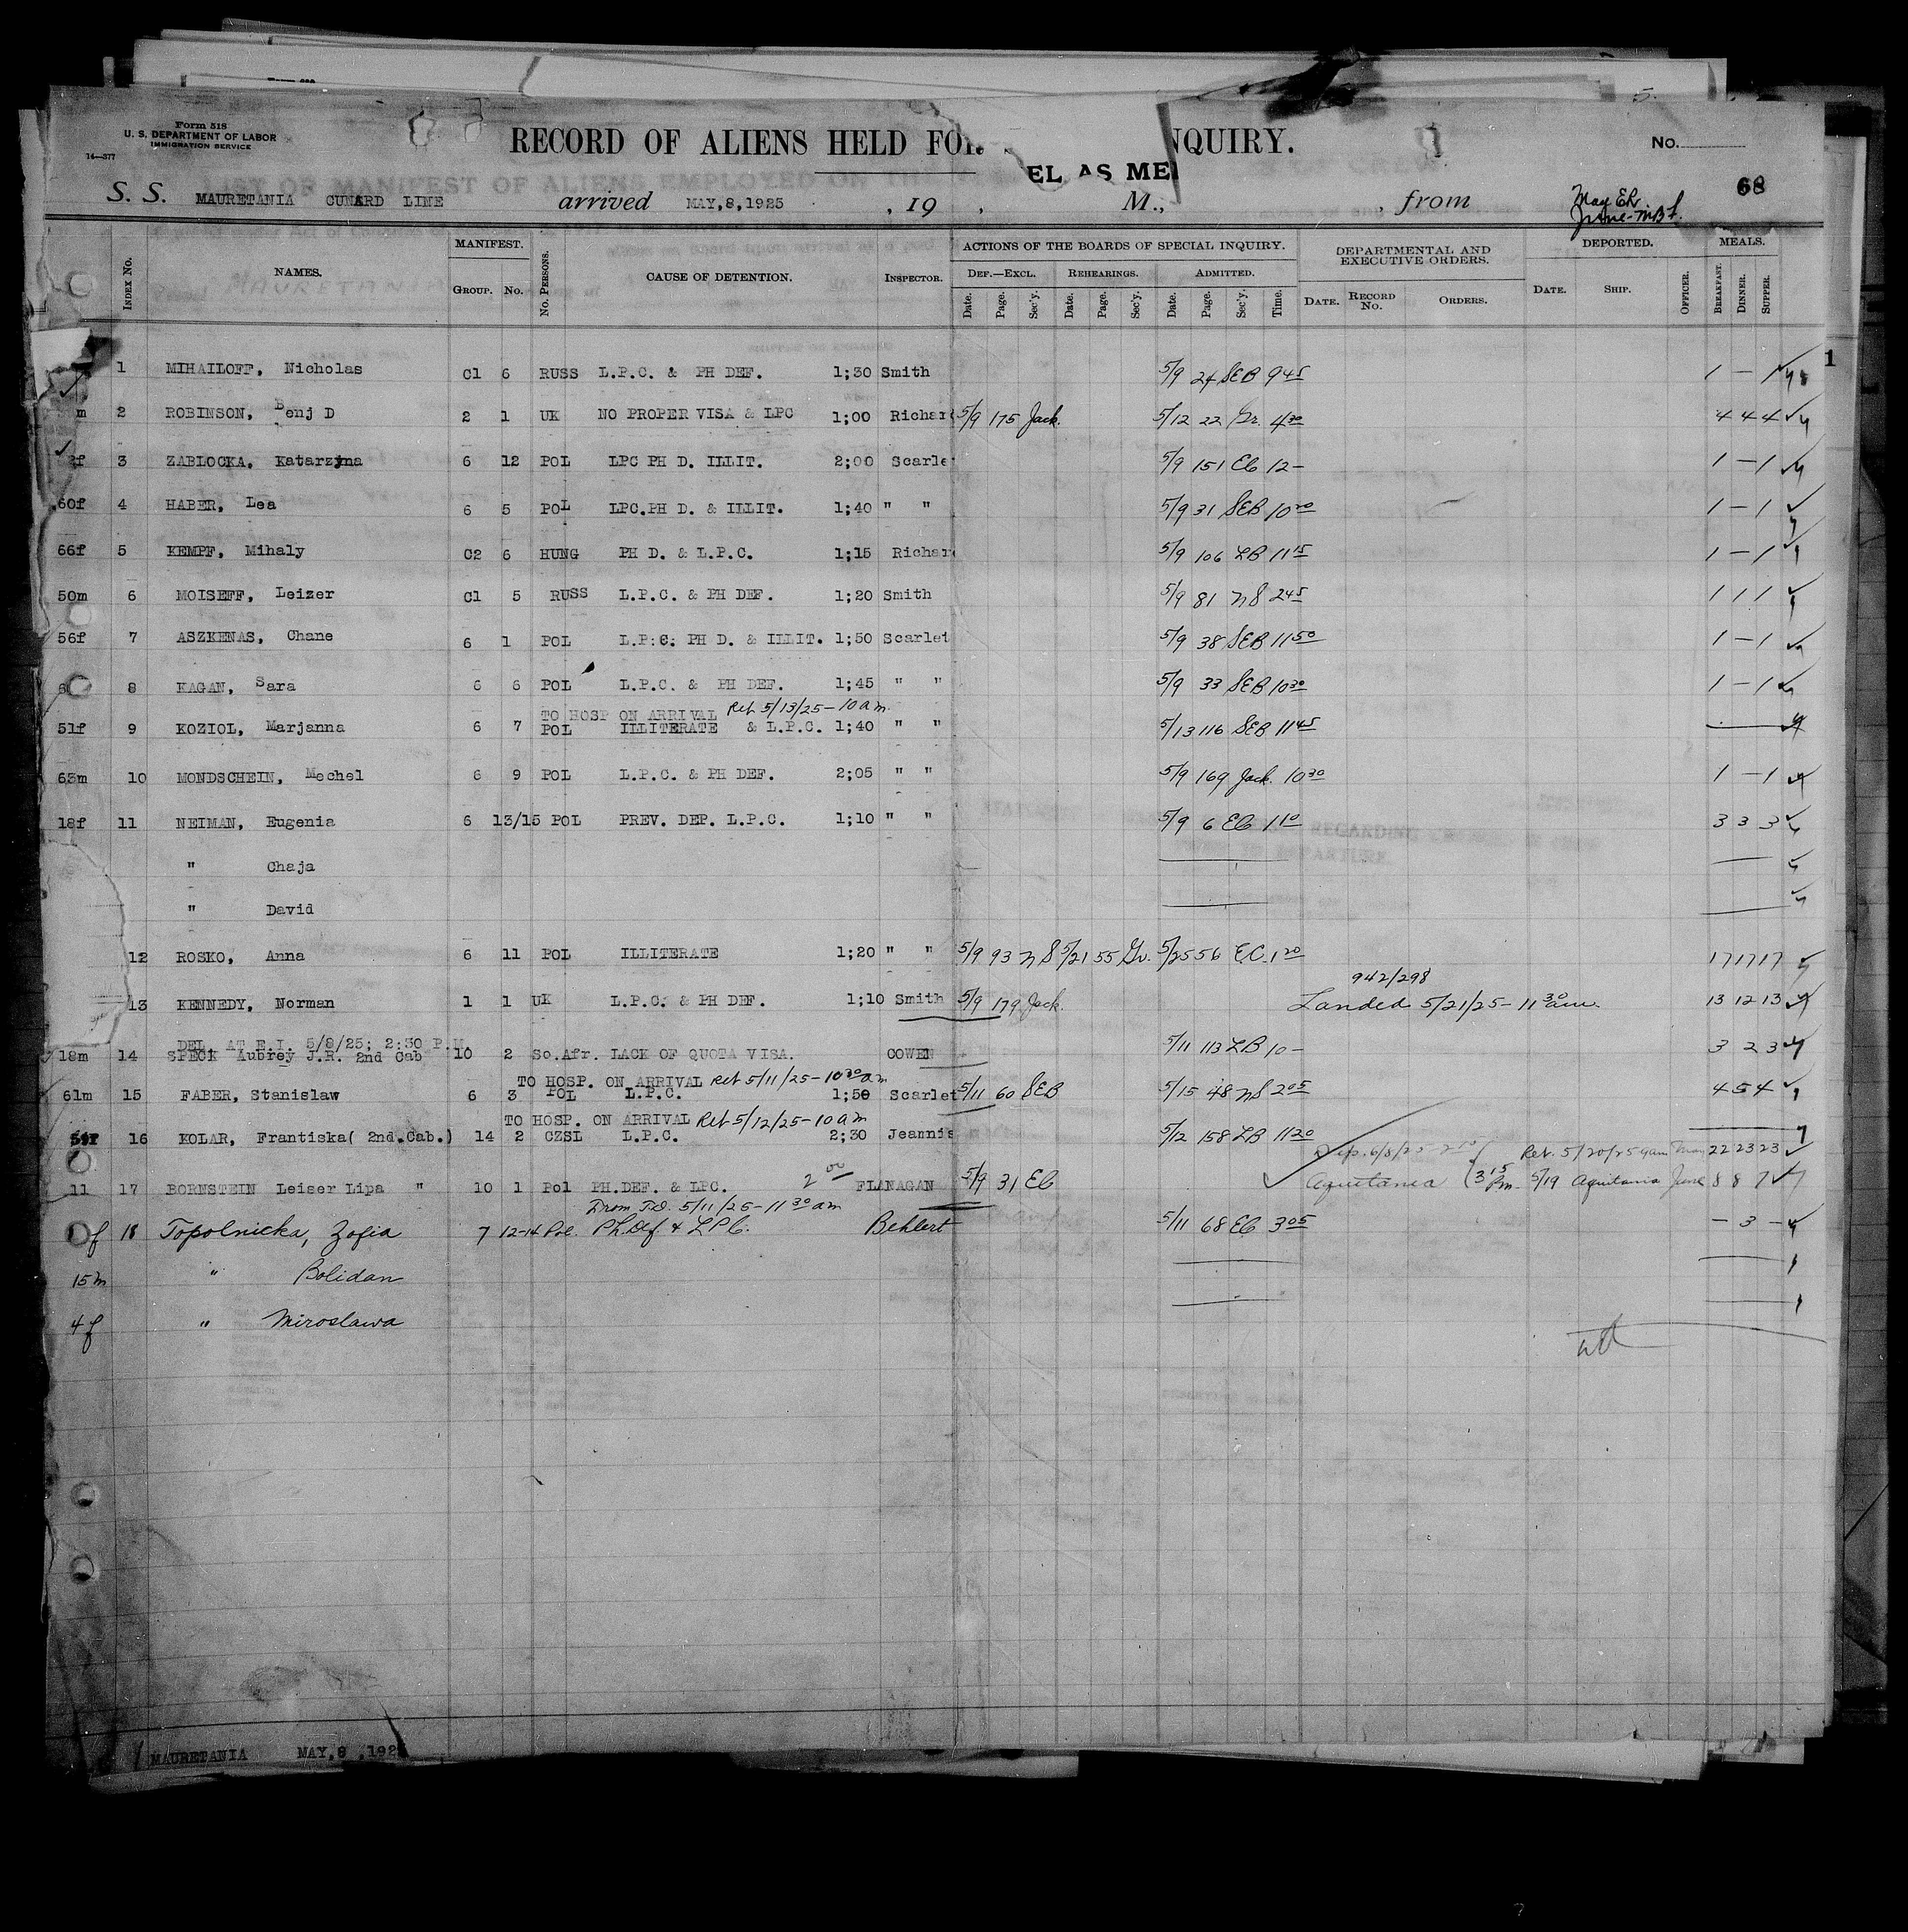 Form 518
U. S. DEPARTMENT OF LABOR
IMMIGRATION SERVICE
14—377
RECORD OF ALIENS HELD FOR NQUIRY.
EL AS MEN
No.
68
LIST OR MANIFEST OF ALIENS EMPLOYED ON THE
S. S. MAURETANIA CUNARD LINE arrived MAY,8,1925 , 19 , M., , from
May
June
MAURETANIA
Index No. NAMES. MANIFEST. Group. No. No. Persons. CAUSE OF DETENTION. Inspector. ACTIONS OF THE BOARDS OF SPECIAL INQUIRY. DEPARTMENTAL AND EXECUTIVE ORDERS. DEPORTED. MEALS.
Def.—Excl. Rehearings. Admitted.
Date. Page. Sec'y. Date. Page. Sec'y. Date. Page. Sec'y. Time. Date. Record No. Orders. Date. Ship. Officer. Breakfast. Dinner. Supper.
1 MIHAILOFF, Nicholas C1 6 RUSS L.P.C. & PH DEF. 1;30 Smith 5/9 24 SEB 9 45 1 — 1
1
m 2 ROBINSON, Benj D 2 1 UK NO PROPER VISA & LPC 1;00 Richar 5/9 175 Jack. 5/12 22 Gr. 4 30 4 4 4
f 3 ZABLOCKA, Katarzyna 6 12 POL LPC PH D. ILLIT. 2;00 Scarle 5/9 151 EC 12 — 1 — 1
60f 4 HABER, Lea 6 5 POL LPC.PH D. & ILLIT. 1;40 " " 5/9 31 SEB 10 20 1 — 1
66f 5 KEMPF, Mihaly C2 6 HUNG PH D. & L.P.C. 1;15 Richar 5/9 106 LB 11 15 1 — 1
50m 6 MOISEFF, Leizer C1 5 RUSS L.P.C. & PH DEF. 1;20 Smith 5/9 81 NS 2 45 1 1 1
56f 7 ASZKENAS, Chane 6 1 POL L.P.C. PH D. & ILLIT. 1;50 Scarlet 5/9 38 SEB 11 50 1 — 1
6 8 KAGAN, Sara 6 6 POL L.P.C. & PH DEF. 1;45 " " 5/9 33 SEB 10 30 1 — 1
TO HOSP ON ARRIVAL Ret 5/13/25 — 10 a m.
51f 9 KOZIOL, Marjanna 6 7 POL ILLITERATE & L.P.C. 1;40 " " 5/13 116 SEB 11 45
63m 10 MONDSCHEIN, Mechel 6 9 POL L.P.C. & PH DEF. 2;05 " " 5/9 169 Jack. 10 30 1 — 1
18f 11 NEIMAN, Eugenia 6 13/15 POL PREV. DEP. L.P.C. 1;10 " " 5/9 6 EC 1 10 3 3 3
" Chaja
" David
12 ROSKO, Anna 6 11 POL ILLITERATE 1;20 " " 5/9 93 NS 5/21 55 Gr. 5/25 56 E.C. 1 20 17 17 17
942/298
13 KENNEDY, Norman 1 1 UK L.P.C. & PH DEF. 1;10 Smith 5/9 179 Jack. Landed 5/21/25 — 11 30 am. 13 12 13
DEL. AT E.I. 5/8/25; 2:30 P.M.
18m 14 SPECK Aubrey J.R. 2nd Cab 10 2 So.Afr. LACK OF QUOTA VISA. COWEN 5/11 113 LB 10 — 3 2 3
TO HOSP. ON ARRIVAL Ret 5/11/25 — 10 30 a m
61m 15 FABER, Stanislaw 6 3 POL L.P.C. 1;50 Scarlet 5/11 60 SEB 5/15 48 NS 2 05 4 5 4
TO HOSP. ON ARRIVAL Ret 5/12/25 — 10 a m
16 KOLAR, Frantiska( 2nd.Cab.) 14 2 CZSL L.P.C. 2;30 Jeannis 5/12 158 LB 11 20
Dep. 6/8/25 Ret. 5/20/25 9am May 22 23 23
11 17 BORNSTEIN Leiser Lipa " 10 1 Pol PH.DEF. & LPC. 2 00 FLANAGAN 5/9 31 EC Aquitania 3 15 Pm. 5/19 Aquitania June 8 8 7
From T.D. 5/11/25 — 11 30 am
f 18 Topolnicka, Zofia 7 12-14 Pol. Ph.Def. & L P C. Behlert 5/11 68 EC 3 05 — 3 —
15m " Bolidan
4f " Miroslawa
MAURETANIA MAY,8 ,192